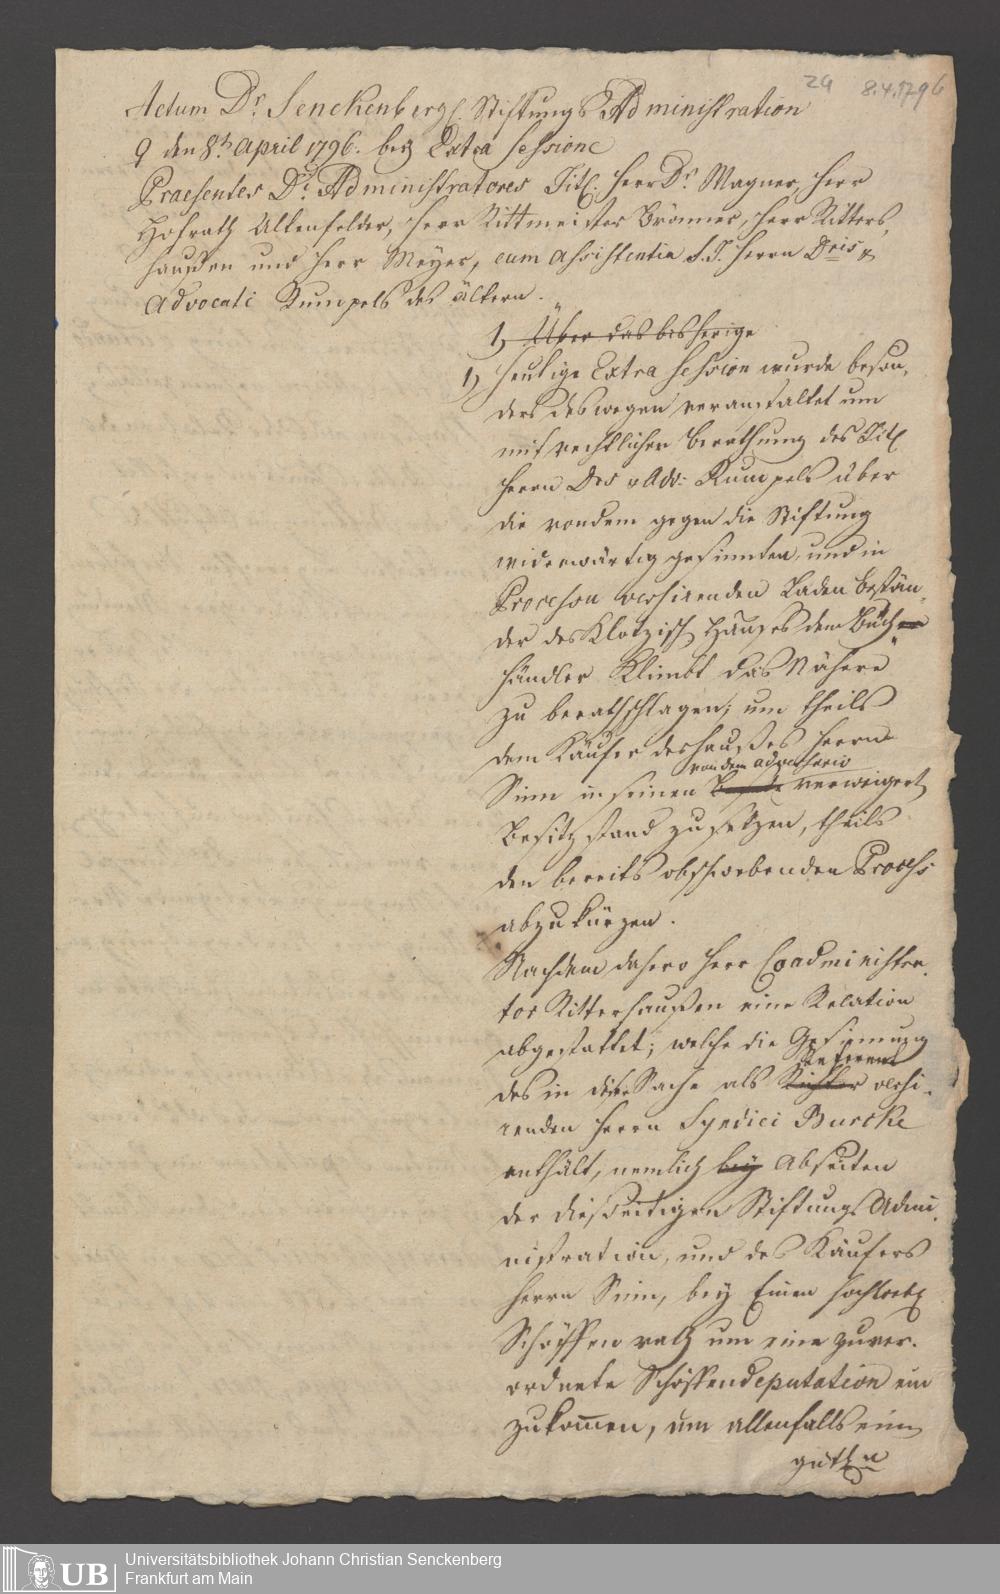 29 8.4.1796
Actum Dr. Senckenbergl. Stiftungs Administration
♀ den 8ten April 1796. bey Extra Sessione
Praesentes Di. Administratores Titl. Herr Dr. Wagner, Herr
Hofrath Altenfelder, Herr Rittmeister Brönner, Herr Ritters-
haußen und Herr Meyer, cum assistentia S. T. Herrn Dris &
Advocati Rumpels des ältern.
1) Über das bisherige
1) Heutige Extra Session wurde beson-
ders deswegen veranstaltet um
mit rechtlicher Berathung des Titl
Herrn Drs & Adv: Rumpels über
die von dem gegen die Stiftung
widerwärtig gesinnten, und in
Processu versirenden Laden bestän-
der des Klotzisch Hauses dem Buch
händler Klimbt das Nähere
zu berathschlagen; um theils
dem Käufer des Haußes Herrn
von dem adversario
Sinn in seinen verweigert
Besitz stand zu setzen, theils
den bereits obschwebenden Process
abzukürzen.
Nachdem dahero Herr Coadministra-
tor Rittershaußen eine Relation
abgestattet; welche die Gesinnung
Referent
des in dieser Sache als Richter versi-
renden Herrn Syndici Burcke
enthält, nemlich bey Abseiten
der dießeitigen Stiftungs Admi-
nistration, und des Käufers
Herrn Sinn, bey Einem hochlöbl
Schöffen rath um eine zuver-
ordnete Schöffendeputation ein
zukommen, um allenfalls einen
gütln
Universitätsbibliothek Johann Christian Senckenberg
Frankfurt am Main
UB